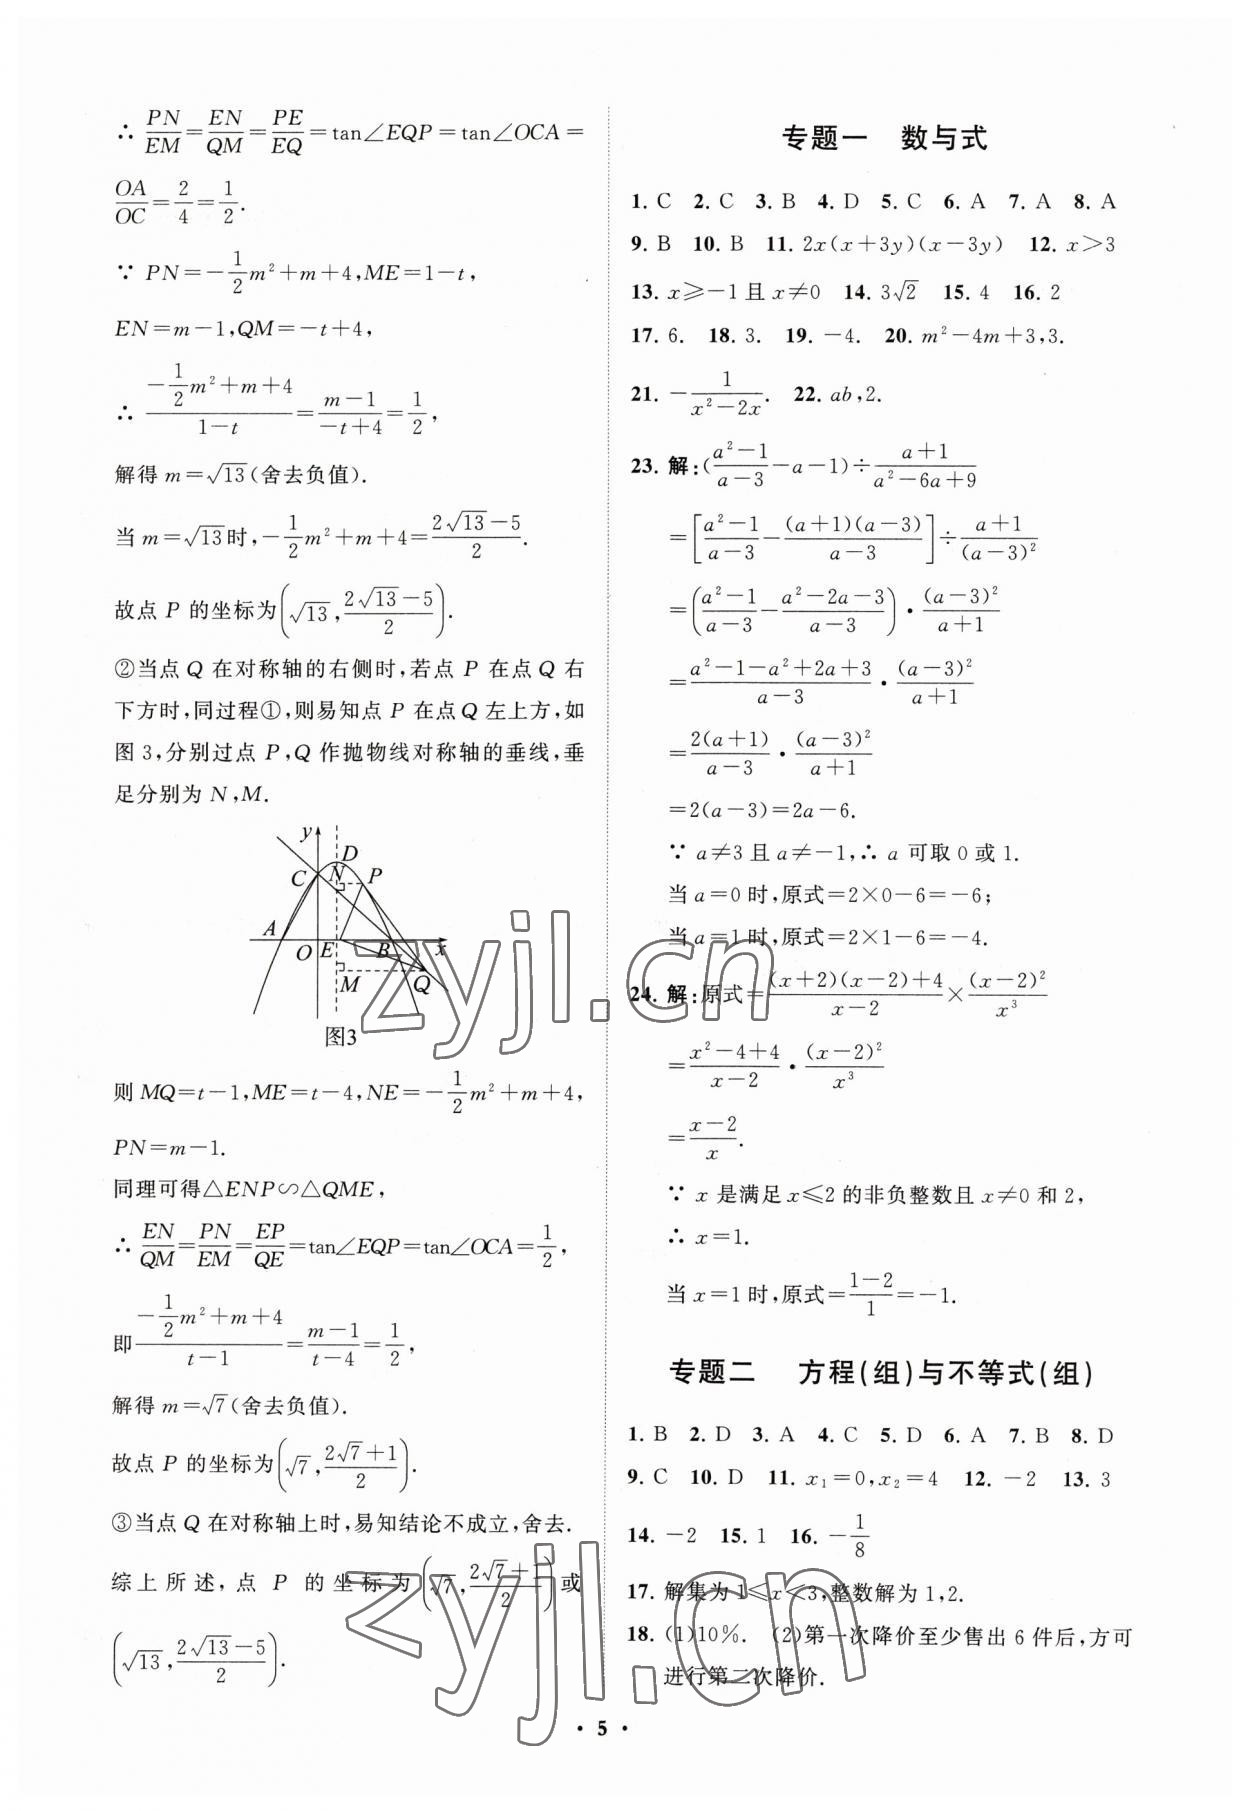 ∴ PN/EM=EN/QM=PE/EQ=tan∠EQP=tan∠OCA=
OA/OC=2/4=1/2.
∵ PN=-1/2m²+m+4,ME=1-t,
EN=m-1,QM=-t+4,
∴ (-1/2m²+m+4)/(1-t)=(m-1)/(-t+4)=1/2,
解得 m=√13(舍去负值).
当 m=√13时,-1/2m²+m+4=(2√13-5)/2.
故点 P 的坐标为(√13,(2√13-5)/2).
②当点 Q 在对称轴的右侧时,若点 P 在点 Q 右
下方时,同过程①,则易知点 P 在点 Q 左上方,如
图 3,分别过点 P,Q 作抛物线对称轴的垂线,垂
足分别为 N,M.
y
D
C N P
A O E B x
M Q
图3
则 MQ=t-1,ME=t-4,NE=-1/2m²+m+4,
PN=m-1.
同理可得△ENP∽△QME,
∴ EN/QM=PN/EM=EP/QE=tan∠EQP=tan∠OCA=1/2,
即(-1/2m²+m+4)/(t-1)=(m-1)/(t-4)=1/2,
解得 m=√7(舍去负值).
故点 P 的坐标为(√7,(2√7+1)/2).
③当点 Q 在对称轴上时,易知结论不成立,舍去.
综上所述,点 P 的坐标为(√7,(2√7+1)/2)或
(√13,(2√13-5)/2).
专题一 数与式
1. C 2. C 3. B 4. D 5. C 6. A 7. A 8. A
9. B 10. B 11. 2x(x+3y)(x-3y) 12. x>3
13. x≥-1 且 x≠0 14. 3√2 15. 4 16. 2
17. 6. 18. 3. 19. -4. 20. m²-4m+3,3.
21. -1/(x²-2x). 22. ab,2.
23. 解:((a²-1)/(a-3)-a-1)÷(a+1)/(a²-6a+9)
=[(a²-1)/(a-3)-(a+1)(a-3)/(a-3)]÷(a+1)/(a-3)²
=((a²-1)/(a-3)-(a²-2a-3)/(a-3))·(a-3)²/(a+1)
=(a²-1-a²+2a+3)/(a-3)·(a-3)²/(a+1)
=2(a+1)/(a-3)·(a-3)²/(a+1)
=2(a-3)=2a-6.
∵ a≠3 且 a≠-1,∴ a 可取 0 或 1.
当 a=0 时,原式=2×0-6=-6;
当 a=1 时,原式=2×1-6=-4.
24. 解:原式=((x+2)(x-2)+4)/(x-2)×(x-2)²/x³
=(x²-4+4)/(x-2)·(x-2)²/x³
=(x-2)/x.
∵ x 是满足 x≤2 的非负整数且 x≠0 和 2,
∴ x=1.
当 x=1 时,原式=(1-2)/1=-1.
专题二 方程(组)与不等式(组)
1. B 2. D 3. A 4. C 5. D 6. A 7. B 8. D
9. C 10. D 11. x₁=0,x₂=4 12. -2 13. 3
14. -2 15. 1 16. -1/8
17. 解集为 1≤x<3,整数解为 1,2.
18. (1)10%. (2)第一次降价至少售出 6 件后,方可
进行第二次降价.
· 5 ·
zyjl.cn
zyjl.cn